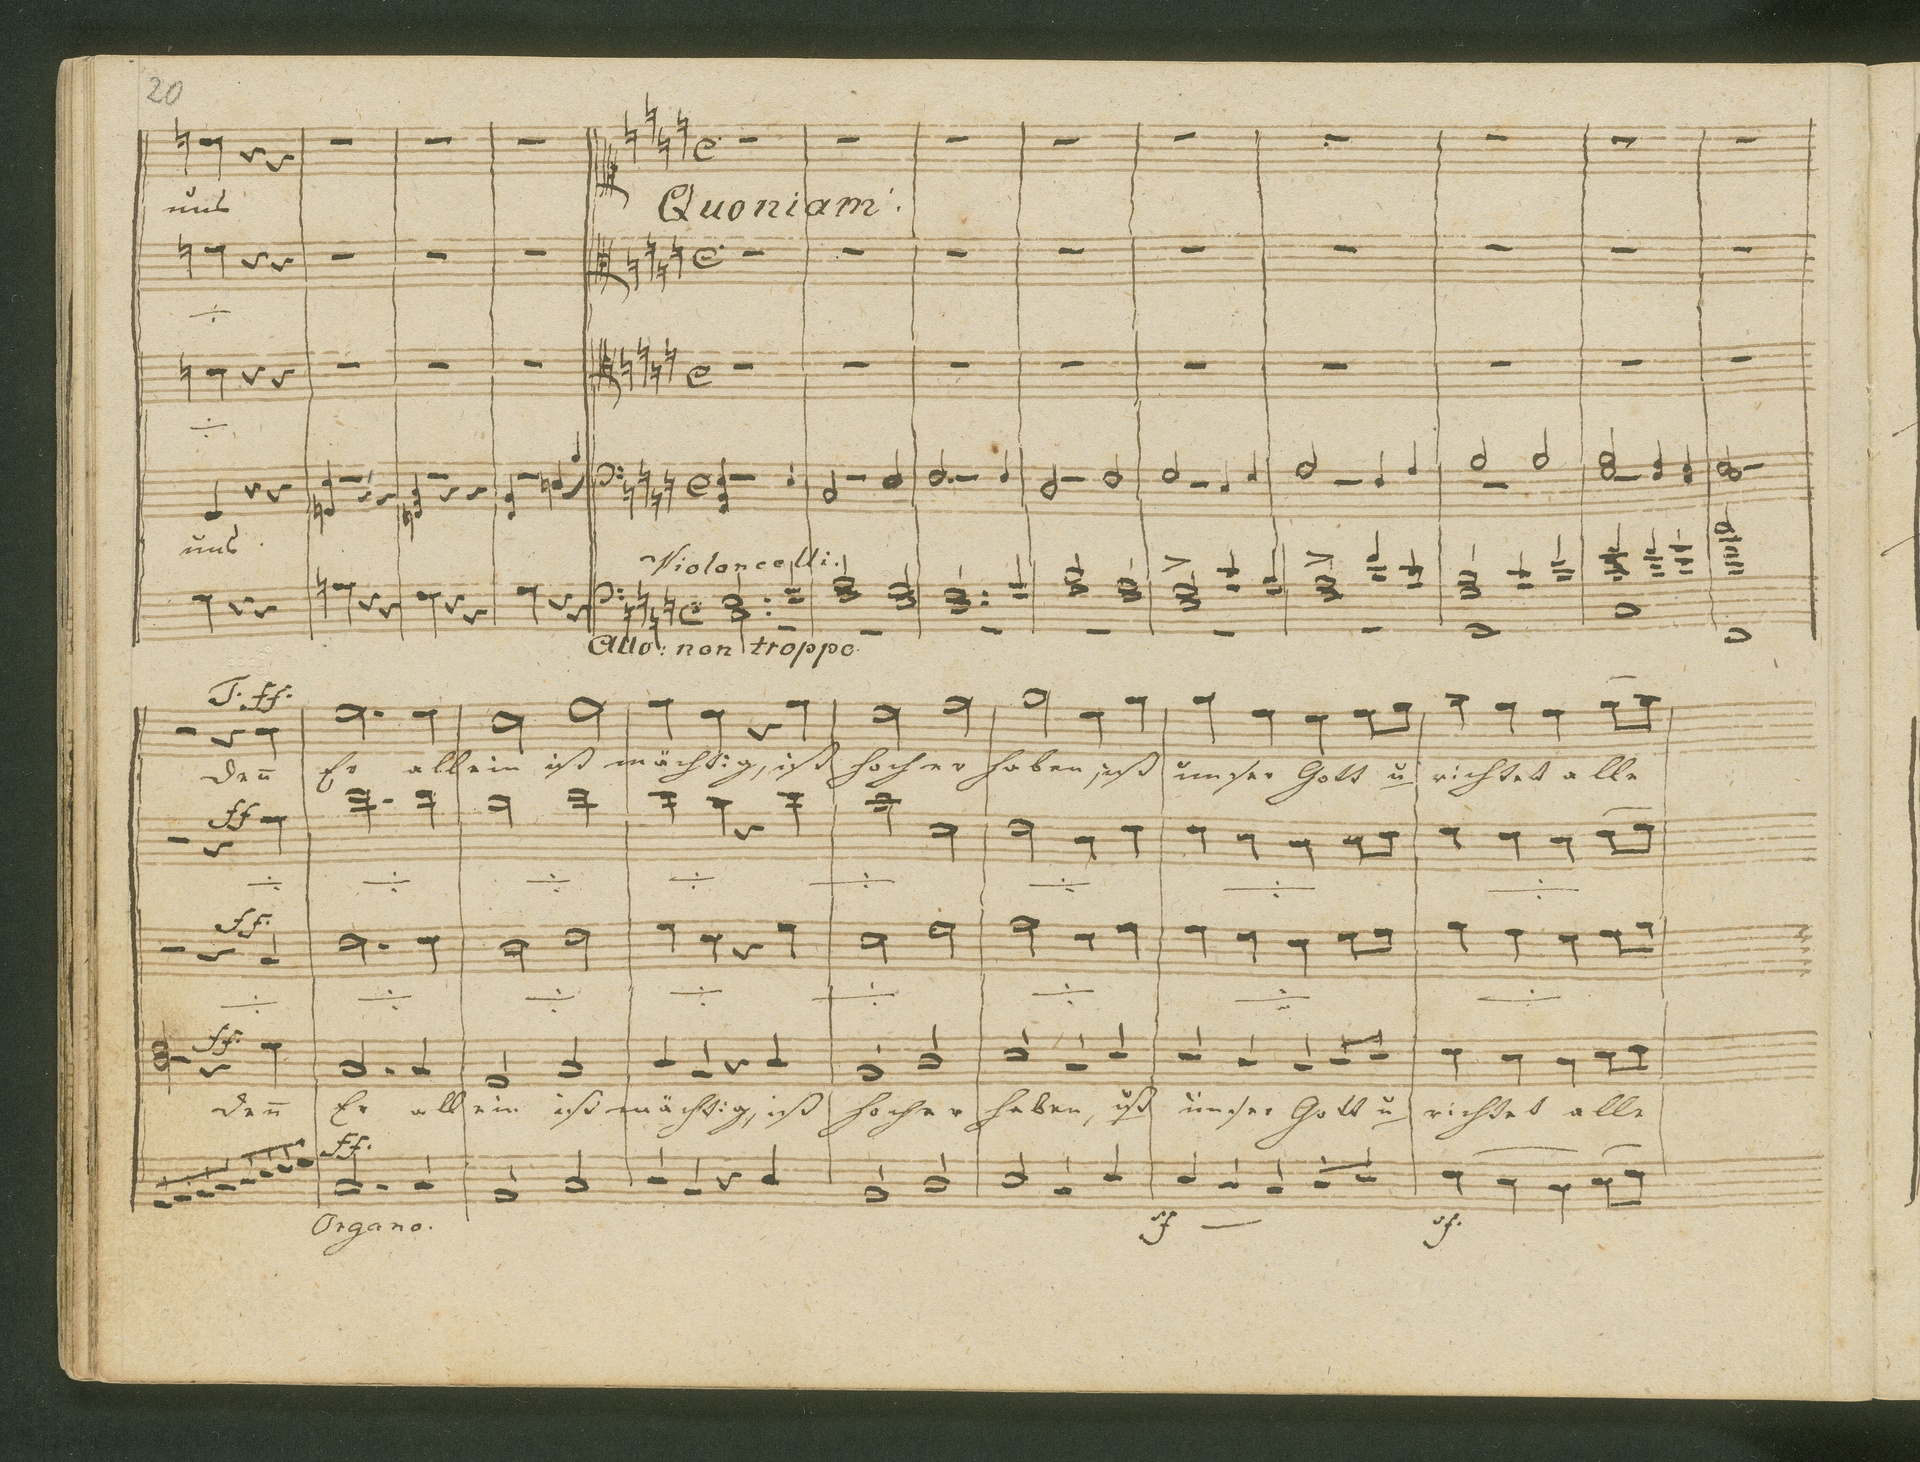 20
uns
Quoniam.
uns
Violoncelli.
Allo: non troppo
T. ff.
Denn Er allein ist mächtig, ist hoch er haben, ist unser Gott u richtet alle
ff
ff.
ff.
Denn Er allein ist mächtig, ist hoch er haben, ist unser Gott u richtet alle
ff.
Organo.
sf
sf.